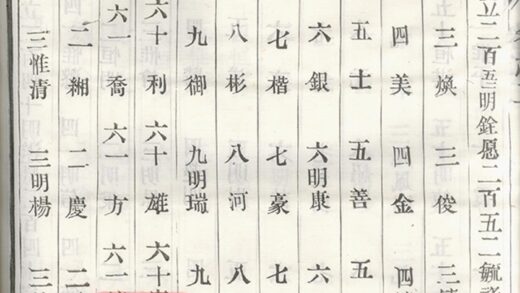 立二百五明銓愿二百五二毓
三煥 三俊 三
四美 四金 四
五士 五善 五
六銀 六明康 六
七楷 七豪 七
八彬 八明河 八
九御 九明瑞 九
六十利 六十雄 六十
六一喬 六一方 六一
二緗 二慶 二
三惟清 三明楊 三